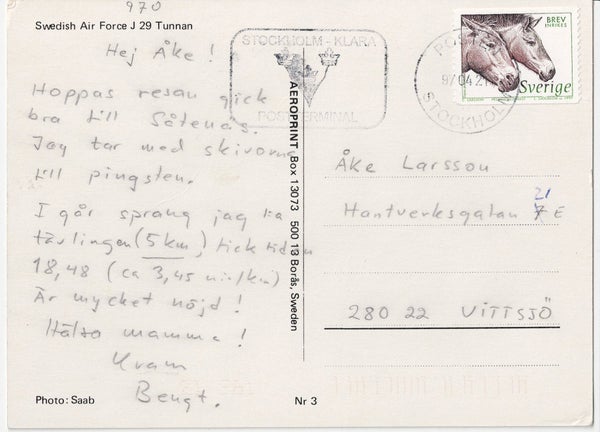 970
Swedish Air Force J 29 Tunnan
Hej Åke!
Hoppas resan gick
bra till Såtenäs.
Jag tar med skivorna
till pingsten.
I går sprang jag
tävlingen (5 km), fick tiden
18,48 (ca 3,45 min/km)
Är mycket nöjd!
Hälsa mamma!
Kram
Bengt.
Photo: Saab
Nr 3
AEROPRINT Box 13073 500 13 Borås, Sweden
STOCKHOLM-KLARA
POSTTERMINAL
POSTEN
97 04 21
STOCKHOLM
BREV
INRIKES
Sverige
Åke Larsson
21
Hantverksgatan 7 E
280 22 VITTSJÖ